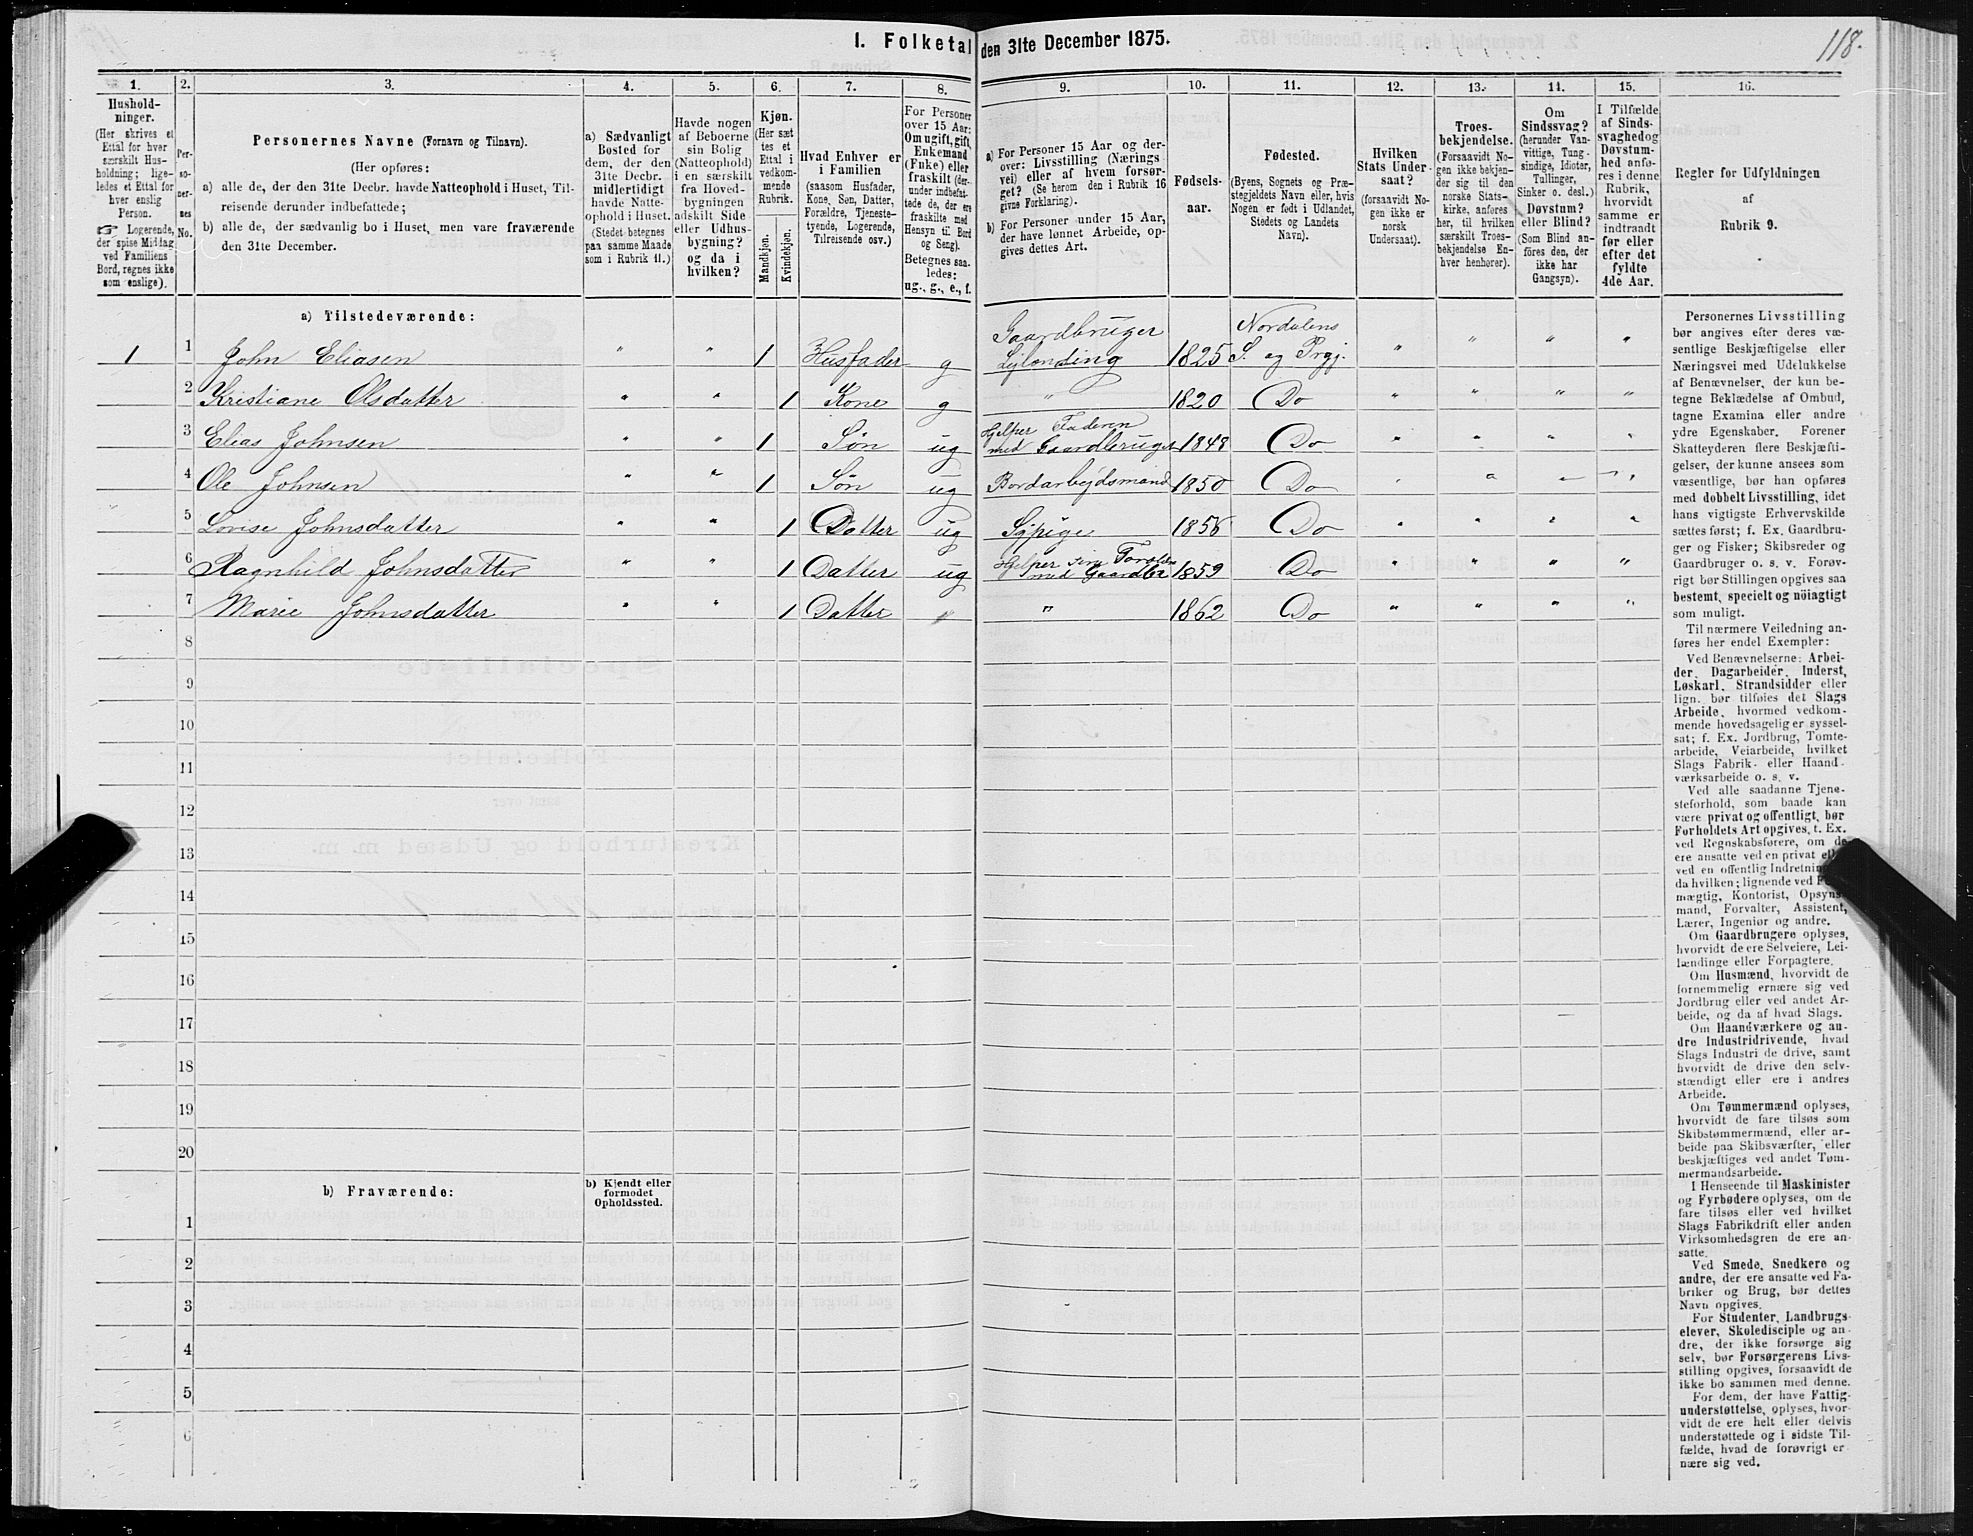 I. Folketal den 31te December 1875.
118.
1.
Hushold-
ninger.
(Her skrives et
Ettal for hver
særskilt Hus-
holdning; lige-
ledes et Ettal for
hver enslig
Person.
☞ Logerende,
der spise Middag
ved Familiens
Bord, regnes ikke
som enslige).
2.
Per-
so-
ner-
nes
No.
3.
Personernes Navne (Fornavn og Tilnavn).
(Her opføres:
a) alle de, der den 31te Decbr. havde Natteophold i Huset, Til-
reisende derunder indbefattede;
b) alle de, der sædvanlig bo i Huset, men vare fraværende
den 31te December.
4.
a) Sædvanligt
Bosted for
dem, der den
31te Decbr.
midlertidigt
havde Natte-
ophold i Huset.
(Stedet betegnes
paa samme Maade
som i Rubrik 11.)
5.
Havde nogen
af Beboerne
sin Bolig
(Natteophold)
i en særskilt
fra Hoved-
bygningen
adskilt Side
eller Udhus-
bygning?
og da i
hvilken?
6.
Kjøn.
(Her sæt
tes et
Ettal i
vedkom-
mende
Rubrik.
Mandkjøn.
Kvindekjøn.
7.
Hvad Enhver er
i Familien
(saasom Husfader,
Kone, Søn, Datter,
Forældre, Tjeneste-
tyende, Logerende,
Tilreisende osv.)
8.
For Personer
over 15 Aar:
Om ugift, gift,
Enkemand
(Enke) eller
fraskilt (der-
under indbefat-
tede de, der ere
fraskilte med
Hensyn til Bord
og Seng).
Betegnes saa-
ledes:
ug., g., e., f.
9.
a) For Personer 15 Aar og der-
over: Livsstilling (Nærings
vei) eller af hvem forsør-
get? (Se herom den i Rubrik 16
givne Forklaring).
b) For Personer under 15 Aar,
der have lønnet Arbeide, op-
gives dettes Art.
10.
Fødsels-
aar.
11.
Fødested.
(Byens, Sognets og Præ-
stegjeldets Navn eller, hvis
Nogen er født i Udlandet,
Stedets og Landets
Navn).
12.
Hvilken
Stats Under-
saat?
(forsaavidt No-
gen ikke er
norsk
Undersaat).
13.
Troes-
bekjendelse.
(Forsaavidt No-
gen ikke bekjen-
der sig til den
norske Stats-
kirke, anføres
her, til hvilken
særskilt Troes-
bekjendelse En-
hver henhører).
14.
Om
Sindssvag?
(herunder Van-
vittige, Tung-
sindige, Idioter,
Tullinger,
Sinker o. desl.)
Døvstum?
eller Blind?
(Som Blind an-
føres den, der
ikke har
Gangsyn).
15.
I Tilfælde
af Sinds-
svaghed og
Døvstum-
hed anfø-
res i denne
Rubrik,
hvorvidt
samme er
indtraadt
før eller
efter det
fyldte
4de Aar.
16.
Regler for Udfyldningen
af
Rubrik 9.
a) Tilstedeværende:
1 1 John Eliasen " " 1 Husfader g Gaardbruger Leilending 1825 Nordalens S. og Prgj. " " " "
2 Kristiane Olsdatter " " 1 Kone g " 1820 Do " " " "
3 Elias Johnsen " " 1 Søn ug Hjelper Faderen med Gaardbruget 1848 Do " " " "
4 Ole Johnsen " " 1 Søn ug Bordarbejdsmand 1850 Do " " " "
5 Lovise Johnsdatter " " 1 Datter ug Sypige 1856 Do " " " "
6 Ragnhild Johnsdatter " " 1 Datter ug Hjelper sin med Gaardbr 1859 Do " " " "
7 Marie Johnsdatter " " 1 Datter " " 1862 Do " " " "
8
9
10
11
12
13
14
15
16
17
18
19
20
b) Fraværende:
b) Kjendt eller
formodet
Opholdssted.
1
2
3
4
5
6
Personernes Livsstilling
bør angives efter deres væ-
sentlige Beskjæftigelse eller
Næringsvei med Udelukkelse
af Benævnelser, der kun be-
tegne Beklædelse af Ombud,
tagne Examina eller andre
ydre Egenskaber. Forener
Skatteyderen flere Beskjæfti-
gelser, der kunne ansees som
væsentlige, bør han opføres
med dobbelt Livsstilling, idet
hans vigtigste Erhvervskilde
sættes først; f. Ex. Gaardbru-
ger og Fisker; Skibsreder og
Gaardbruger o. s. v. Forøv-
rigt bør Stillingen opgives saa
bestemt, specielt og nöiagtigt
som muligt.
Til nærmere Veiledning an-
føres her endel Exempler:
Ved Benævnelserne: Arbei-
der, Dagarbeider, Inderst,
Løskarl, Strandsidder eller
lign. bør tilføies det Slags
Arbeide, hvormed vedkom-
mende hovedsagelig er syssel-
sat; f. Ex. Jordbrug, Tomte-
arbeide, Veiarbeide, hvilket
Slags Fabrik- eller Haand-
værksarbeide o. s. v.
Ved alle saadanne Tjene-
steforhold, som baade kan
være privat og offentligt, bør
Forholdets Art opgives, t. Ex.
ved Regnskabsførere, om de
ere ansatte ved en privat
ved en offentlig
da hvilken; lignende ved
mægtig, Kontorist, Opsyns-
mand, Forvalter, Assistent,
Lærer, Ingeniør og andre.
Om Gaardbrugere oplyses,
hvorvidt de ere Selveiere, Lei-
lændinge eller Forpagtere.
Om Husmænd, hvorvidt de
fornemmelig ernære sig ved
Jordbrug eller ved andet Ar-
beide, og da af hvad Slags.
Om Haandværkere og an-
dre Industridrivende, hvad
Slags Industri de drive, samt
hvorvidt de drive den selv-
stændigt eller ere i andres
Arbeide.
Om Tømmermænd oplyses,
hvorvidt de fare tilsøs som
Skibstømmermænd, eller ar-
beide paa Skibsværfter, eller
beskjæftiges ved andet Tøm-
mermandsarbeide.
I Henseende til Maskinister
og Fyrbødere oplyses, om de
fare tilsøs eller ved hvilket
Slags Fabrikdrift eller anden
Virksomhedsgren de ere an-
satte.
Ved Smede, Snedkere og
andre, der ere ansatte ved Fa-
briker og Brug, bør dettes
Navn opgives.
For Studenter, Landbrugs-
elever, Skoledisciple og an-
dre, der ikke forsørge sig
selv, bør Forsørgerens Livs-
stilling opgives, forsaavidt de
ikke bo sammen med denne.
For dem, der have Fattig-
understøttelse, oplyses, hvor-
vidt de ere helt eller delvis
understøttede og i sidste Til-
fælde, hvad de forøvrigt er-
nære sig ved.